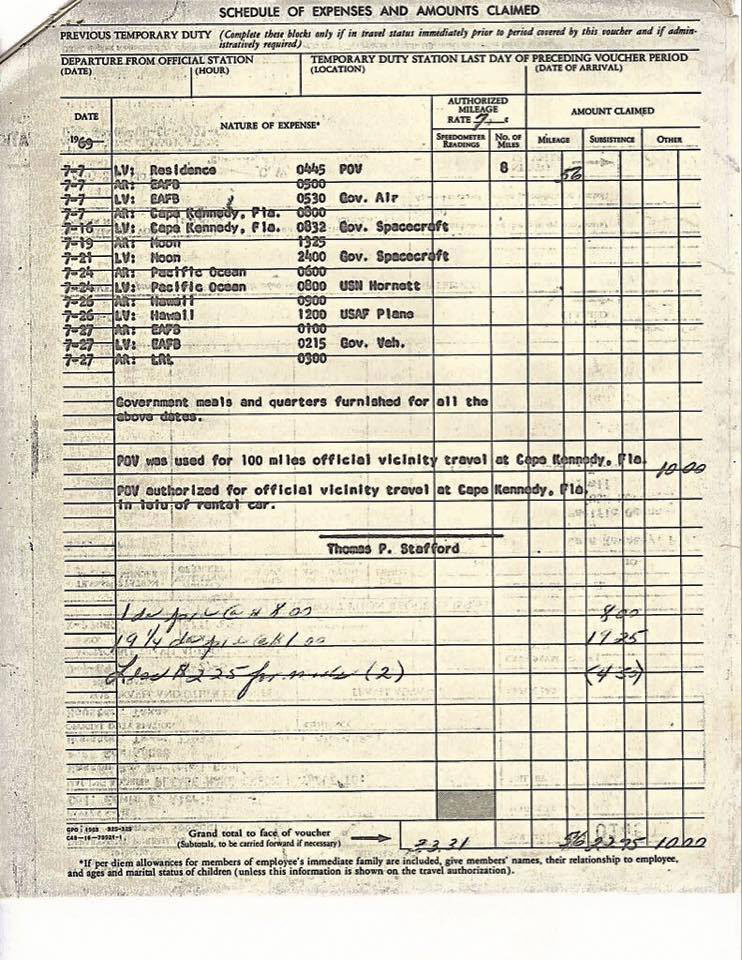 SCHEDULE OF EXPENSES AND AMOUNTS CLAIMED
PREVIOUS TEMPORARY DUTY (Complete these blocks only if in travel status immediately prior to period covered by this voucher and if admin-
istratively required)
DEPARTURE FROM OFFICIAL STATION
(DATE) (HOUR)
TEMPORARY DUTY STATION LAST DAY OF PRECEDING VOUCHER PERIOD
(LOCATION) (DATE OF ARRIVAL)
DATE
1969
NATURE OF EXPENSE*
AUTHORIZED
MILEAGE
RATE 7 ¢
SPEEDOMETER
READINGS
NO. OF
MILES
AMOUNT CLAIMED
MILEAGE SUBSISTENCE OTHER
7-7 LV: Residence 0445 POV 8 56
7-7 AR: EAFB 0500
7-7 LV: EAFB 0530 Gov. Air
7-7 AR: Cape Kennedy, Fla. 0800
7-16 LV: Cape Kennedy, Fla. 0832 Gov. Spacecraft
7-19 AR: Moon 1325
7-21 LV: Moon 2400 Gov. Spacecraft
7-24 AR: Pacific Ocean 0600
7-24 LV: Pacific Ocean 0800 USN Hornett
7-26 AR: Hawaii 0900
7-26 LV: Hawaii 1200 USAF Plane
7-27 AR: EAFB 0100
7-27 LV: EAFB 0215 Gov. Veh.
7-27 AR: LRL 0300
Government meals and quarters furnished for all the
above dates.
POV was used for 100 miles official vicinity travel at Cape Kennedy, Fla. 10.00
POV authorized for official vicinity travel at Cape Kennedy, Fla.
in leiu of rental car.
Thomas P. Stafford
1 day 8.00 8.00
19 1/4 day 1.00 19 25
Less $2.25 for meals (2) (4 50)
GPO : 1968
Grand total to face of voucher
(Subtotals, to be carried forward if necessary)
33.31 56 22.75 10.00
*If per diem allowances for members of employee's immediate family are included, give members' names, their relationship to employee,
and ages and marital status of children (unless this information is shown on the travel authorization).